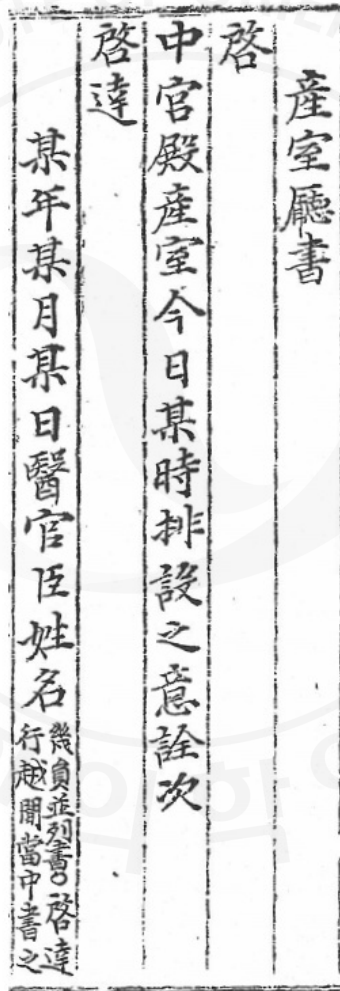 産室廳書
啓
中宮殿産室今日某時排設之意詮次
啓達
某年某月某日醫官臣姓名幾員並列書○啓達
行越間當中書之